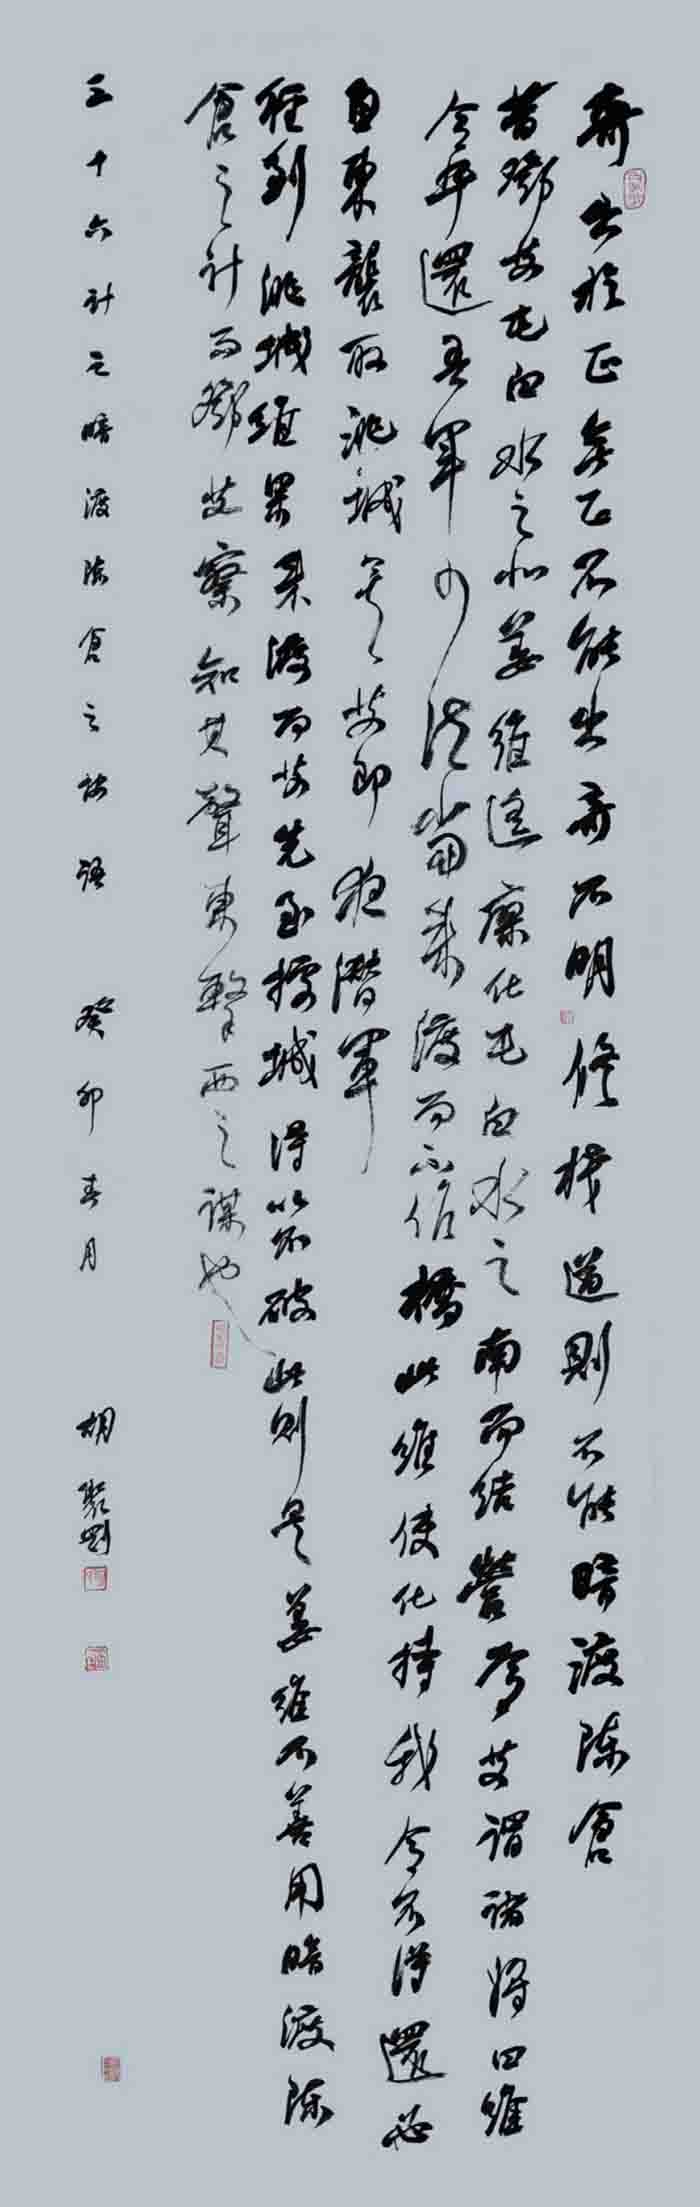 奇出於正無正不能出奇不明修棧道則不能暗渡陳倉
昔鄧艾屯白水之北姜維遙廖化屯白水之南而結營焉艾謂諸將曰維
令卒還吾軍少法當來渡而不作橋此維使化持我令不得還必
自東襲取洮城矣艾即夜潛軍
徑到洮城維果來渡而艾先至據城得以不破此則是姜維不善用暗渡陳
倉之計而鄧艾察知其聲東擊西之謀也
三十六計之暗渡陳倉之按語 癸卯春月 胡聚剛